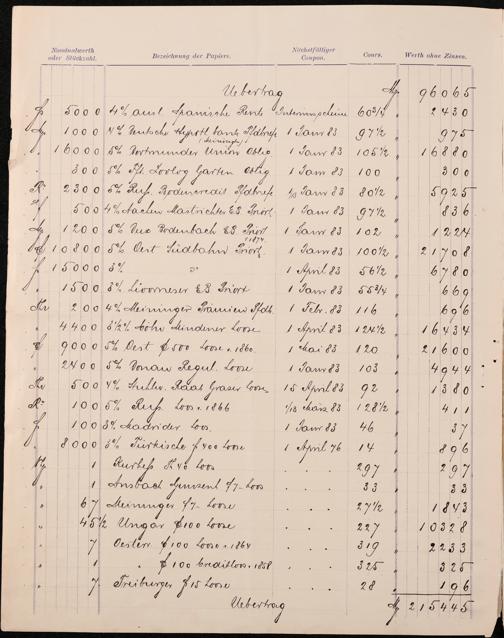 Nominalwerth oder Stückzahl. Bezeichnung der Papiers. Nächstfälliger Coupon. Cours. Werth ohne Zinsen.
Uebertrag M 96065
f 5000 4% ausl Spanische Rente Interimsscheine 60 3/4 " 2430
M 1000 4% Deutsche Hypoth bank Pfdbrfe 1 Janr 83 97 1/2 " 975
(Meiningen)
" 16000 5% Dortmunder Union Oblig 1 Janr 83 105 1/2 " 16880
" 300 5% Zoolog Garten Oblig 1 Janr 83 100 " 300
R° 2300 5% Russ. Bodencredit Pfdbrfe 1/13 Janr 83 80 1/2 " 5925
500 4% Aachen Mastrichter EB Priort 1 Janr 83 97 1/2 " 836
M 1200 5% Bodenbach EB Priort 1 Janr 83 102 " 1224
1874
10800 5% Oest Südbahn Priort 1 Janr 83 100 1/2 " 21708
f 15000 3% " 1 April 83 56 1/2 " 6780
" 1500 3% Livorneser EB Priort 1 Janr 83 55 3/4 " 669
200 4% Meininger Prämien Pfdb. 1 Febr. 83 116 " 696
" 4400 3 1/2% Köln Mindener Loose 1 April 83 124 1/2 " 16434
9000 5% Oest f 500 Loose v. 1860 1 Mai 83 120 " 21600
" 2400 5% Donau Regul. Loose 1 Janr 83 103 " 4944
500 4% Raab Grazer Loose 15 April 83 92 " 1380
R° 100 5% Russ. Loos v. 1866 1/13 März 83 128 1/2 " 411
f 100 3% Madrider Loos 1 Janr 83 46 " 37
" 8000 3% Türkische f 400 Loose 1 April 76 14 " 896
1 Kurhess 40 Loos . . . 297 " 297
" 1 Ansbach Gunzenh f 7- Loos . . . 33 " 33
" 67 Meininger f 7- Loose . . . 27 1/2 " 1843
" 45 1/2 Ungar f 100 Loose . . . 227 " 10328
" 7 Oesterr f 100 Loose v. 1864 . . . 319 " 2233
" 1 " f 100 Creditloos v. 1858 . . . 325 " 325
" 7 Freiburger f 15 Loose . . . 28 " 196
Uebertrag M 215445